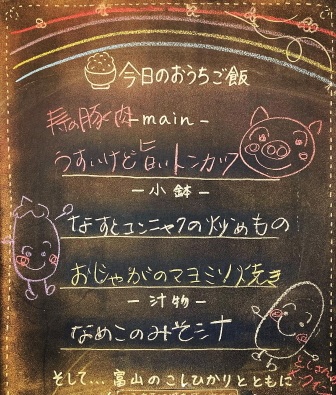 今日のおうちご飯
寿の豚肉-main-
うすいけど旨いトンカツ
-小鉢-
なすとコンニャクの炒めもの
おじゃがのマヨミソ焼き
-汁物-
なめこのみそ汁
そして…富山のこしひかりとともに